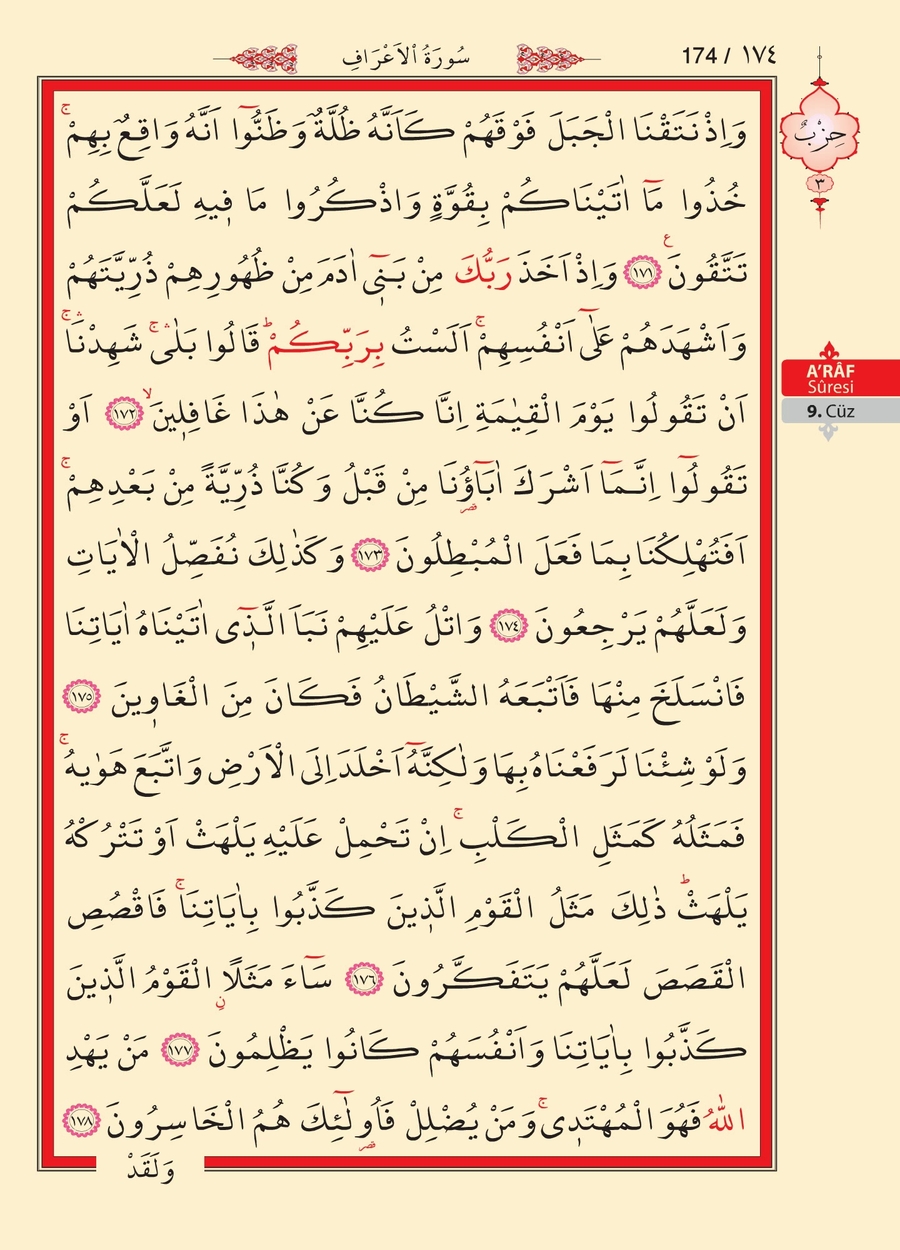 سُورَةُ الْاَعْرَافِ
174 / ١٧٤
وَاِذْ نَتَقْنَا الْجَبَلَ فَوْقَهُمْ كَاَنَّهُ ظُلَّةٌ وَظَنُّٓوا اَنَّهُ وَاقِعٌ بِهِمْۚ
خُذُوا مَٓا اٰتَيْنَاكُمْ بِقُوَّةٍ وَاذْكُرُوا مَا ف۪يهِ لَعَلَّكُمْ
تَتَّقُونَ ﴿١٧١﴾ ع وَاِذْ اَخَذَ رَبُّكَ مِنْ بَن۪ٓي اٰدَمَ مِنْ ظُهُورِهِمْ ذُرِّيَّتَهُمْ
وَاَشْهَدَهُمْ عَلٰٓى اَنْفُسِهِمْۚ اَلَسْتُ بِرَبِّكُمْۜ قَالُوا بَلٰىۛۚ شَهِدْنَاۛۚ
اَنْ تَقُولُوا يَوْمَ الْقِيٰمَةِ اِنَّا كُنَّا عَنْ هٰذَا غَافِل۪ينَۙ ﴿١٧٢﴾ اَوْ
تَقُولُٓوا اِنَّمَٓا اَشْرَكَ اٰبَٓاؤُ۬نَا مِنْ قَبْلُ وَكُنَّا ذُرِّيَّةً مِنْ بَعْدِهِمْۚ
اَفَتُهْلِكُنَا بِمَا فَعَلَ الْمُبْطِلُونَ ﴿١٧٣﴾ وَكَذٰلِكَ نُفَصِّلُ الْاٰيَاتِ
وَلَعَلَّهُمْ يَرْجِعُونَ ﴿١٧٤﴾ وَاتْلُ عَلَيْهِمْ نَبَاَ الَّذ۪ٓي اٰتَيْنَاهُ اٰيَاتِنَا
فَانْسَلَخَ مِنْهَا فَاَتْبَعَهُ الشَّيْطَانُ فَكَانَ مِنَ الْغَاو۪ينَ ﴿١٧٥﴾
وَلَوْ شِئْنَا لَرَفَعْنَاهُ بِهَا وَلٰكِنَّهُٓ اَخْلَدَ اِلَى الْاَرْضِ وَاتَّبَعَ هَوٰيهُۚ
فَمَثَلُهُ كَمَثَلِ الْكَلْبِۚ اِنْ تَحْمِلْ عَلَيْهِ يَلْهَثْ اَوْ تَتْرُكْهُ
يَلْهَثْۜ ذٰلِكَ مَثَلُ الْقَوْمِ الَّذ۪ينَ كَذَّبُوا بِاٰيَاتِنَاۚ فَاقْصُصِ
الْقَصَصَ لَعَلَّهُمْ يَتَفَكَّرُونَ ﴿١٧٦﴾ سَٓاءَ مَثَلًاۨ الْقَوْمُ الَّذ۪ينَ
كَذَّبُوا بِاٰيَاتِنَا وَاَنْفُسَهُمْ كَانُوا يَظْلِمُونَ ﴿١٧٧﴾ مَنْ يَهْدِ
اللّٰهُ فَهُوَ الْمُهْتَد۪يۚ وَمَنْ يُضْلِلْ فَاُو۬لٰٓئِكَ هُمُ الْخَاسِرُونَ ﴿١٧٨﴾
وَلَقَدْ
حِزْبٌ
٣
A'RÂF
Sûresi
9. Cüz